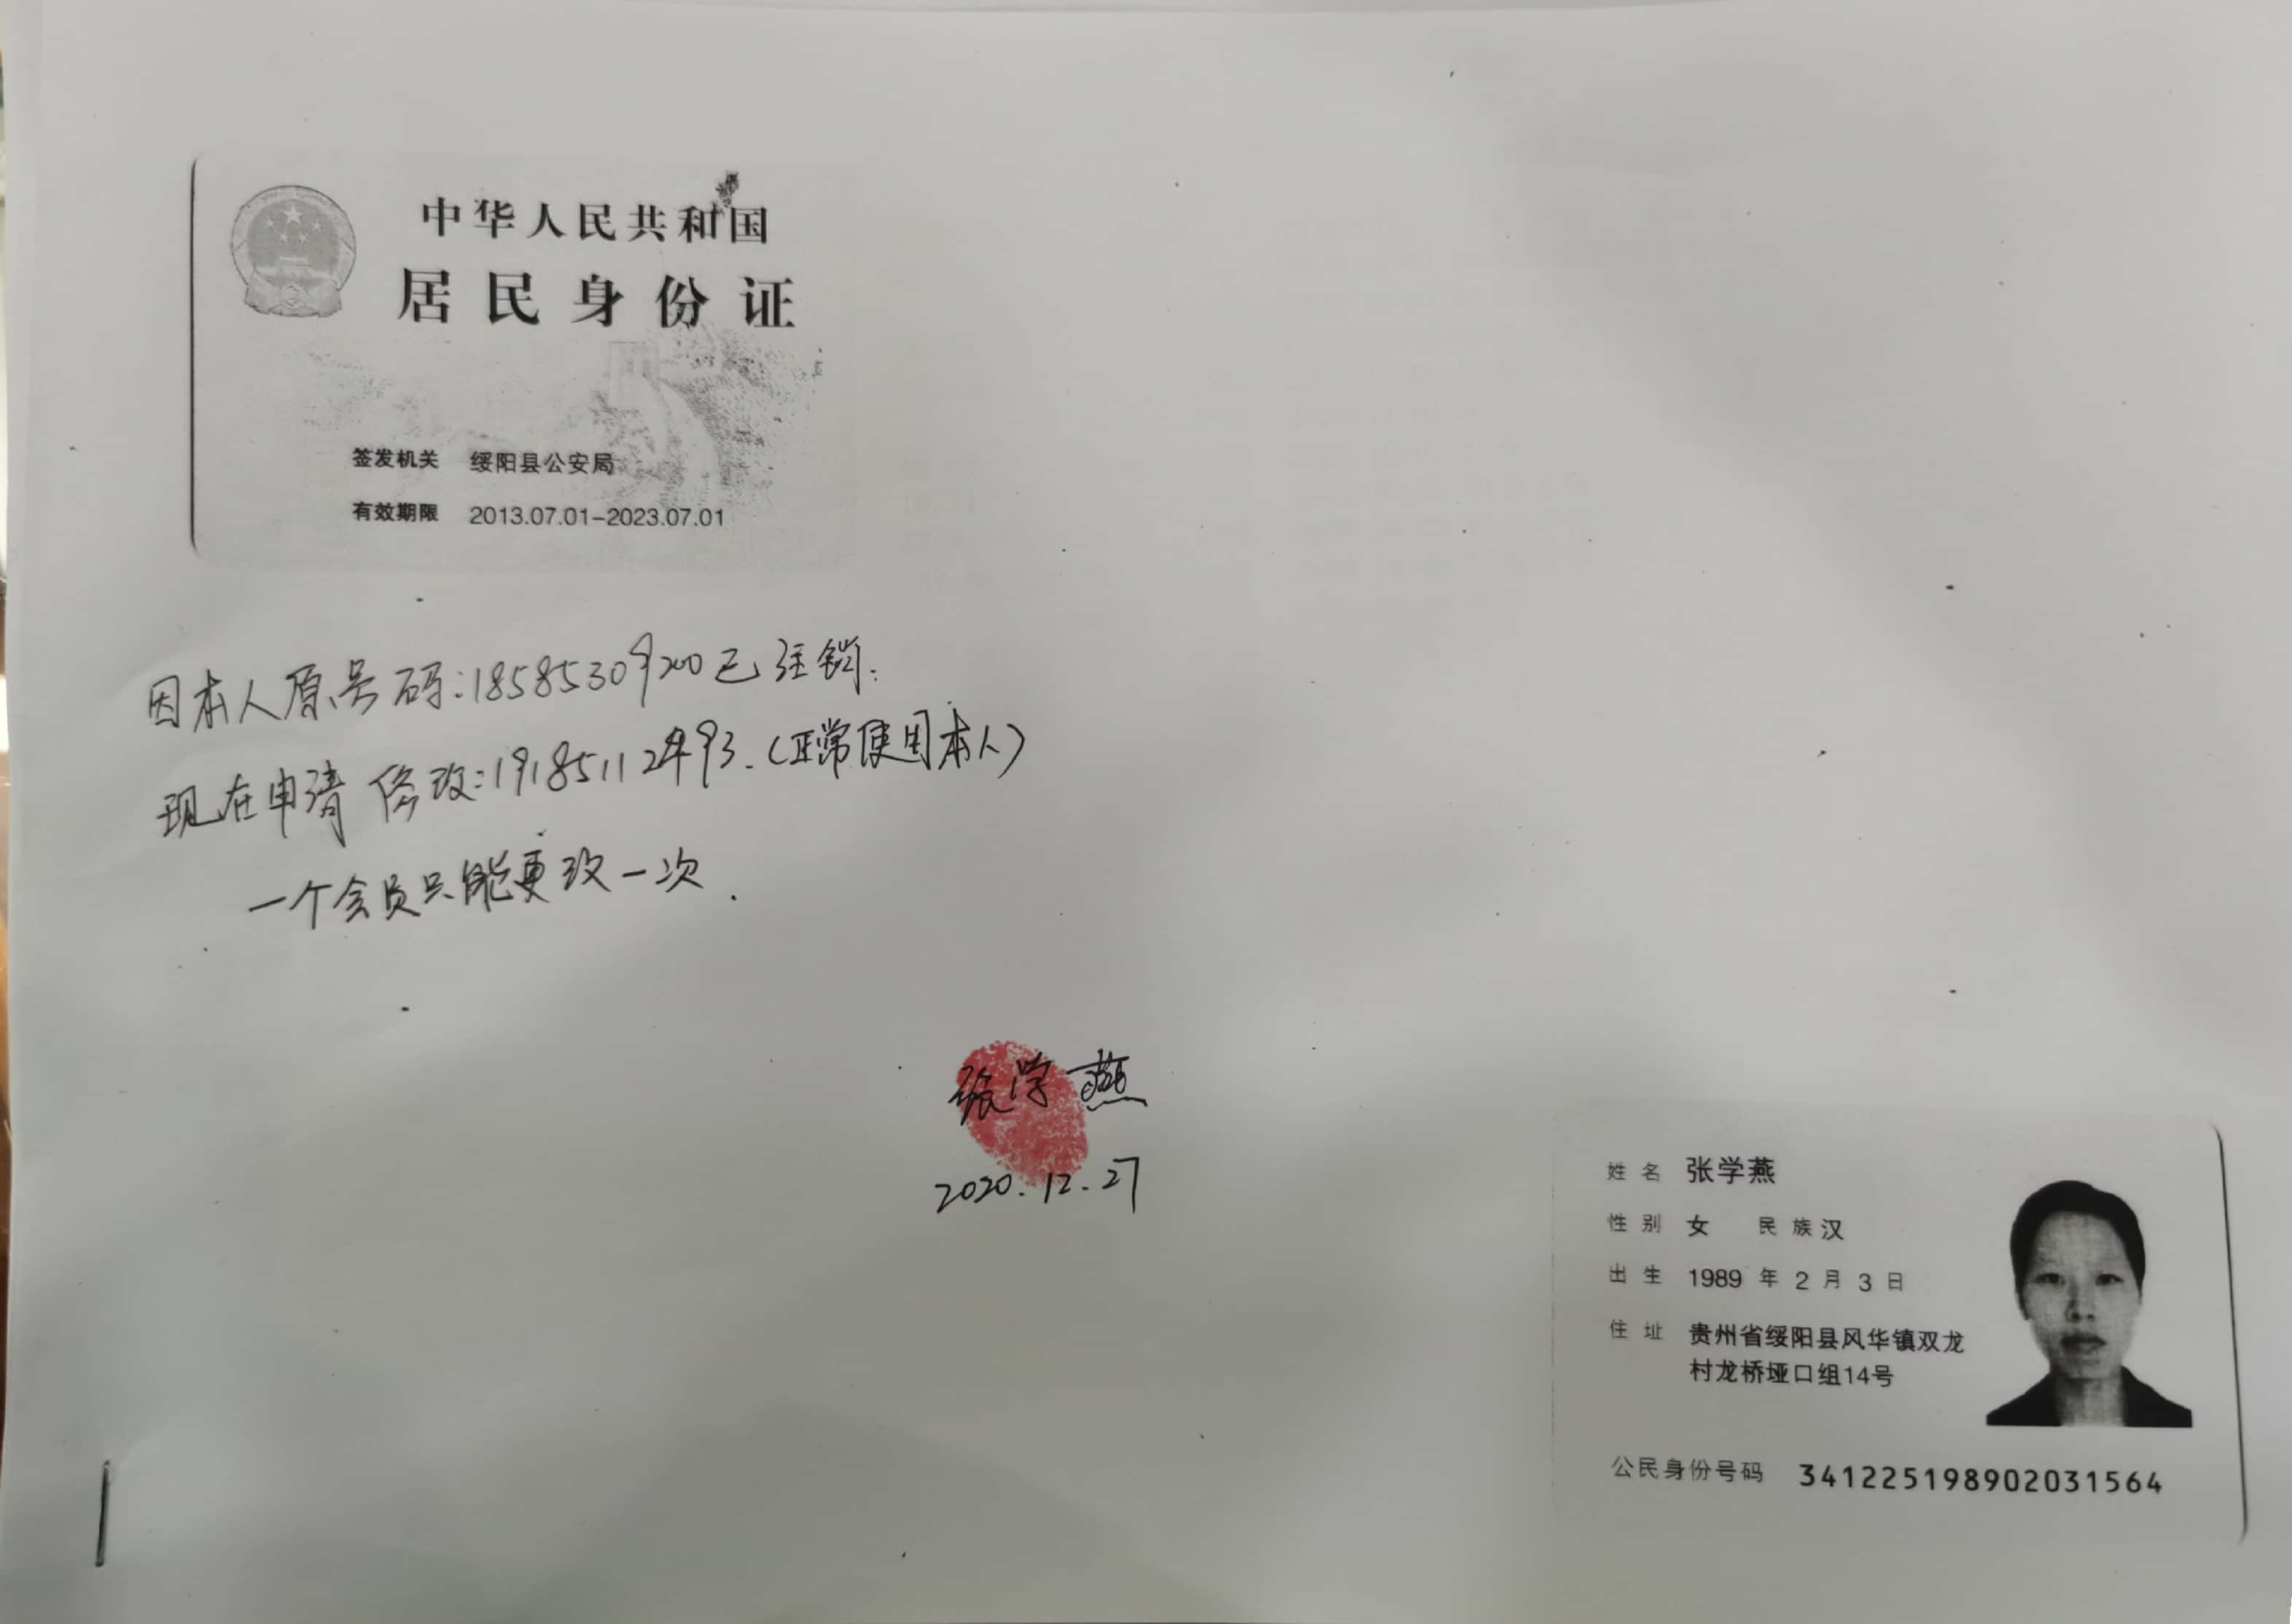 中华人民共和国
居民身份证
签发机关 绥阳县公安局
有效期限 2013.07.01-2023.07.01
因本人原号码:18585309200已注销.
现在申请修改:19185112493.(正常使用本人)
一个会员只能更改一次.
张学燕
2020.12.27
姓名 张学燕
性别 女 民族 汉
出生 1989年2月3日
住址 贵州省绥阳县风华镇双龙
村龙桥垭口组14号
公民身份号码 341225198902031564